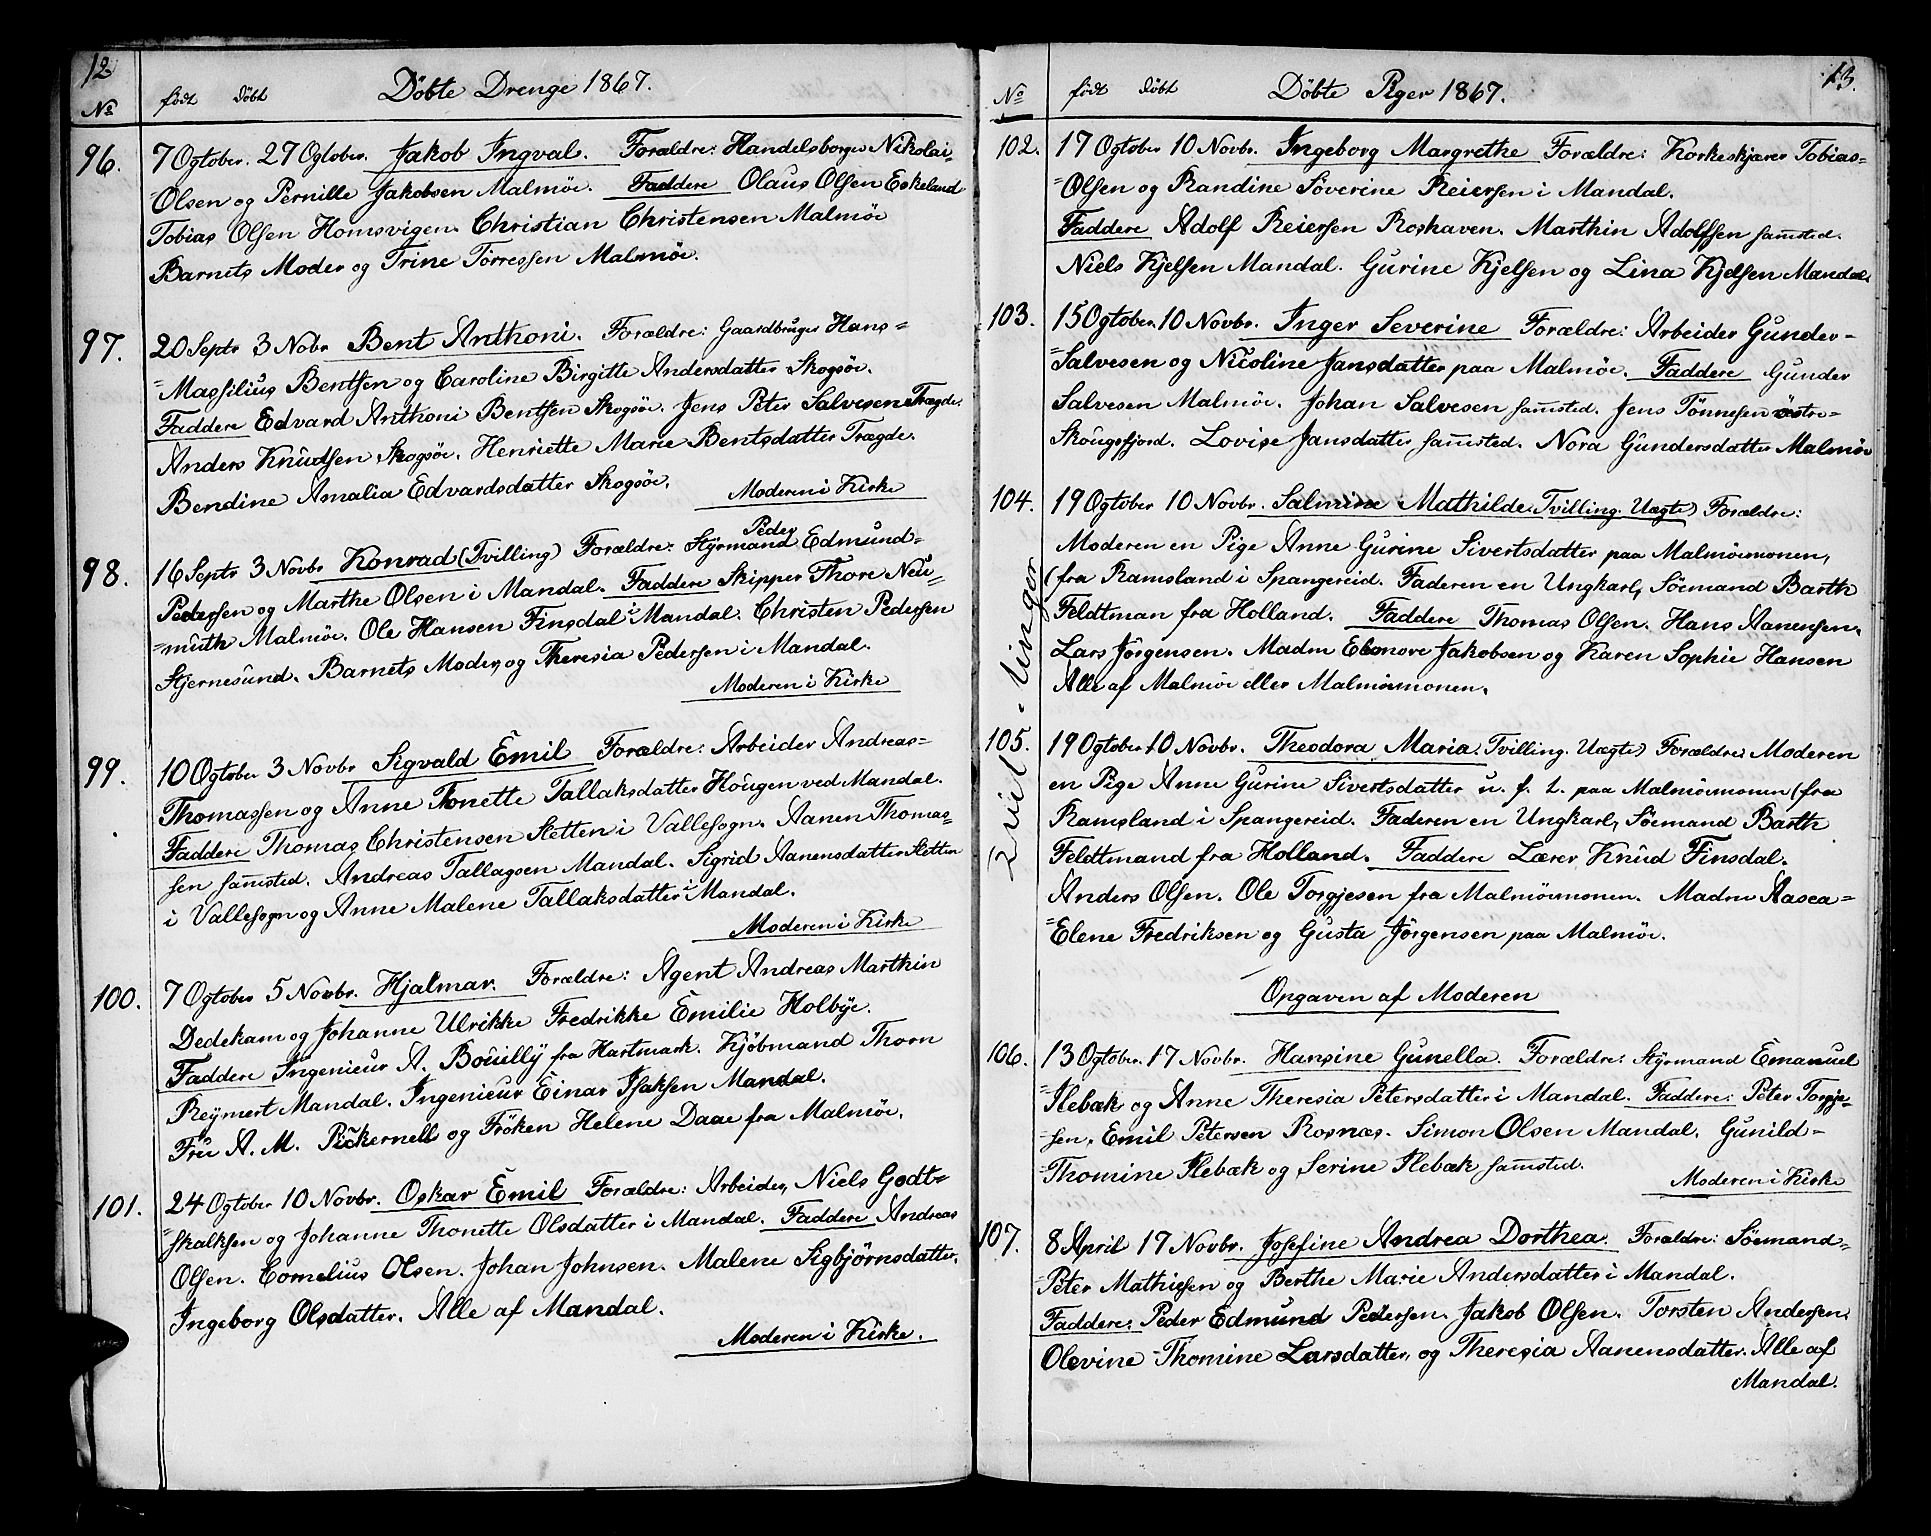 12
Döbte Drenge 1867.
No födt Döbt
96. 7 Ogtober. 27 Ogtober. Jakob Ingval. Forældre: Handelsborger Nikolai-
=Olsen og Pernille Jakobsen Malmöe. Faddere Olaus Olsen Eskeland
Tobias Olsen Homsvigen. Christian Christensen Malmöe
Barnets Moder og Trine Törressen Malmöe.
97. 20 Septr 3 Nobr Bent Anthoni. Forældre: Gaardbruger Hans=
=Massilius Bentsen og Caroline Birgitte Andersdatter Skogsöe.
Faddere Edvard Anthoni Bentsen Skogsöe. Jens Peter Salvesen Trægde.
Anders Knudsen Skogsöe. Henriette Marie Bentsdatter Trægde.
Bendine Amalia Edvardsdatter Skogsöe.
Moderen i Kirke
98. 16 Septr 3 Novbr Konrad (Tvilling) Forældre: Styrmand Peder Edmund=
Pedersen og Marthe Olsen i Mandal. Faddere Skipper Thore Neu=
=muth Malmöe. Ole Hansen Finsdal i Mandal. Christen Pedersen
Stjernesund. Barnets Moder, og Theresia Pedersen i Mandal.
Moderen i Kirke
99. 10 Ogtober 3 Novbr Sigvald Emil Forældre: Arbeider Andreas=
Thomassen og Anne Tonette Tallaksdatter Hougen ved Mandal.
Faddere Thomas Christensen Sletten i Vallesogn. Aanen Thomas=
sen samsted. Andreas Tallagsen Mandal. Sigrid Aanensdatter Sletten
i Vallesogn og Anne Malene Tallaksdatter i Mandal.
Moderen i Kirke
100. 7 Ogtober 5 Novbr. Hjalmar. Forældre: Agent Andreas Marthin
Dedekam og Johanne Ulrikke Fredrikke Emilie Holbye.
Faddere Ingenieur A. Bouilly fra Hartmark. Kjöbmand Thorn
Reymert Mandal. Ingenieur Einar Isaksen Mandal.
Fru A. M. Pickernell og Fröken Helene Daae fra Malmöe.
101. 24 Ogtober 10 Novbr. Oskar Emil Forældre: Arbeider, Niels Godt=
=skalksen og Johanne Thonette Olsdatter i Mandal. Faddere Andreas
Olsen. Cornelius Olsen. Johan Johnsen. Malene Sigbjörnsdatter.
Ingeborg Olsdatter. Alle af Mandal.
Moderen i Kirke.
13.
Döbte Piger 1867.
No födt Döbt
102. 17 Ogtober 10 Novbr. Ingeborg Margrethe Forældre: Korkeskjærer Tobias=
=Olsen og Randine Söverine Reiersen i Mandal.
Faddere Adolf Reiersen Roshaven. Marthin Adolfsen samsted.
Niels Kjelsen Mandal. Gurine Kjelsen og Lina Kjelsen Mandal.
103. 15 Ogtober. 10 Novbr. Inger Severine Forældre: Arbeider Gunder-
=Salvesen og Nicoline Jansdatter paa Malmöe. Faddere Gunder
Salvesen Malmöe. Johan Salvesen samsted. Jens Tönnesen östre=
Skougsfjord. Lovise Jansdatter samsted. Nora Gundersdatter Malmöe
104. 19 Ogtober 10 Novbr. Salmine Mathilde (Tvilling. Uægte) Forældre:
Moderen en Pige Anne Gurine Sivertsdatter paa Malmöemonen,
(fra Ramsland i Spangereid. Faderen en Ungkarl, Söemand Barth
Feldtman fra Holland. Faddere Thomas Olsen. Hans Aanensen.
Lars Jörgensen. Madm Elenore Jakobsen og Karen Sophie Hansen
Alle af Malmöe eller Malmöemonen.
105. 19 Ogtober 10 Novbr. Theodora Maria. Tvilling. Uægte) Forældre: Moderen
en Pige Anne Gurine Sivertsdatter u. f. L. paa Malmöemonen (fra
Ramsland i Spangereid. Faderen en Ungkarl, Söemand Barth
Feldtmand fra Holland. Faddere Lærer Knud Finsdal.
Anders Olsen. Ole Torgjesen fra Malmöemonen. Madm Aasea=
=Elene Fredriksen og Gusta Jörgensen paa Malmöe.
Opgaven af Moderen
106. 13 Ogtober. 17 Novbr. Hansine Gunella. Forældre: Styrmand Emanuel
=Ilebæk og Anne Theresia Petersdatter i Mandal. Faddere: Peter Torgje-
=sen, Emil Petersen Rosnæs. Simon Olsen Mandal. Gunild-
=Thomine Ilebæk og Serine Ilebæk samsted.
Moderen i Kirke
107. 8 April 17 Novbr. Josefine Andrea Dorthea. Forældre: Söemand=
=Peter Mathissen og Berthe Marie Andersdatter i Mandal.
Faddere: Peder Edmund Pedersen. Jakob Olsen. Torsten Andersen.
Olevine Thomine Larsdatter, og Theresia Aanensdatter. Alle af
Mandal.